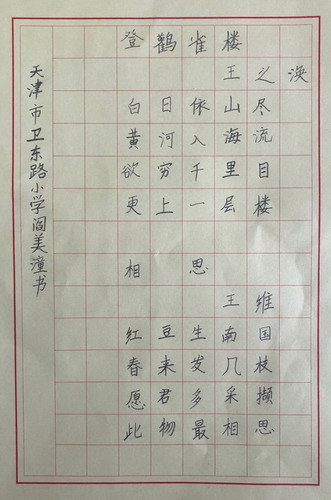 登鹳雀楼
王之涣
白日依山尽
黄河入海流
欲穷千里目
更上一层楼
相思
王维
红豆生南国
春来发几枝
愿君多采撷
此物最相思
天津市卫东路小学阎美潼书